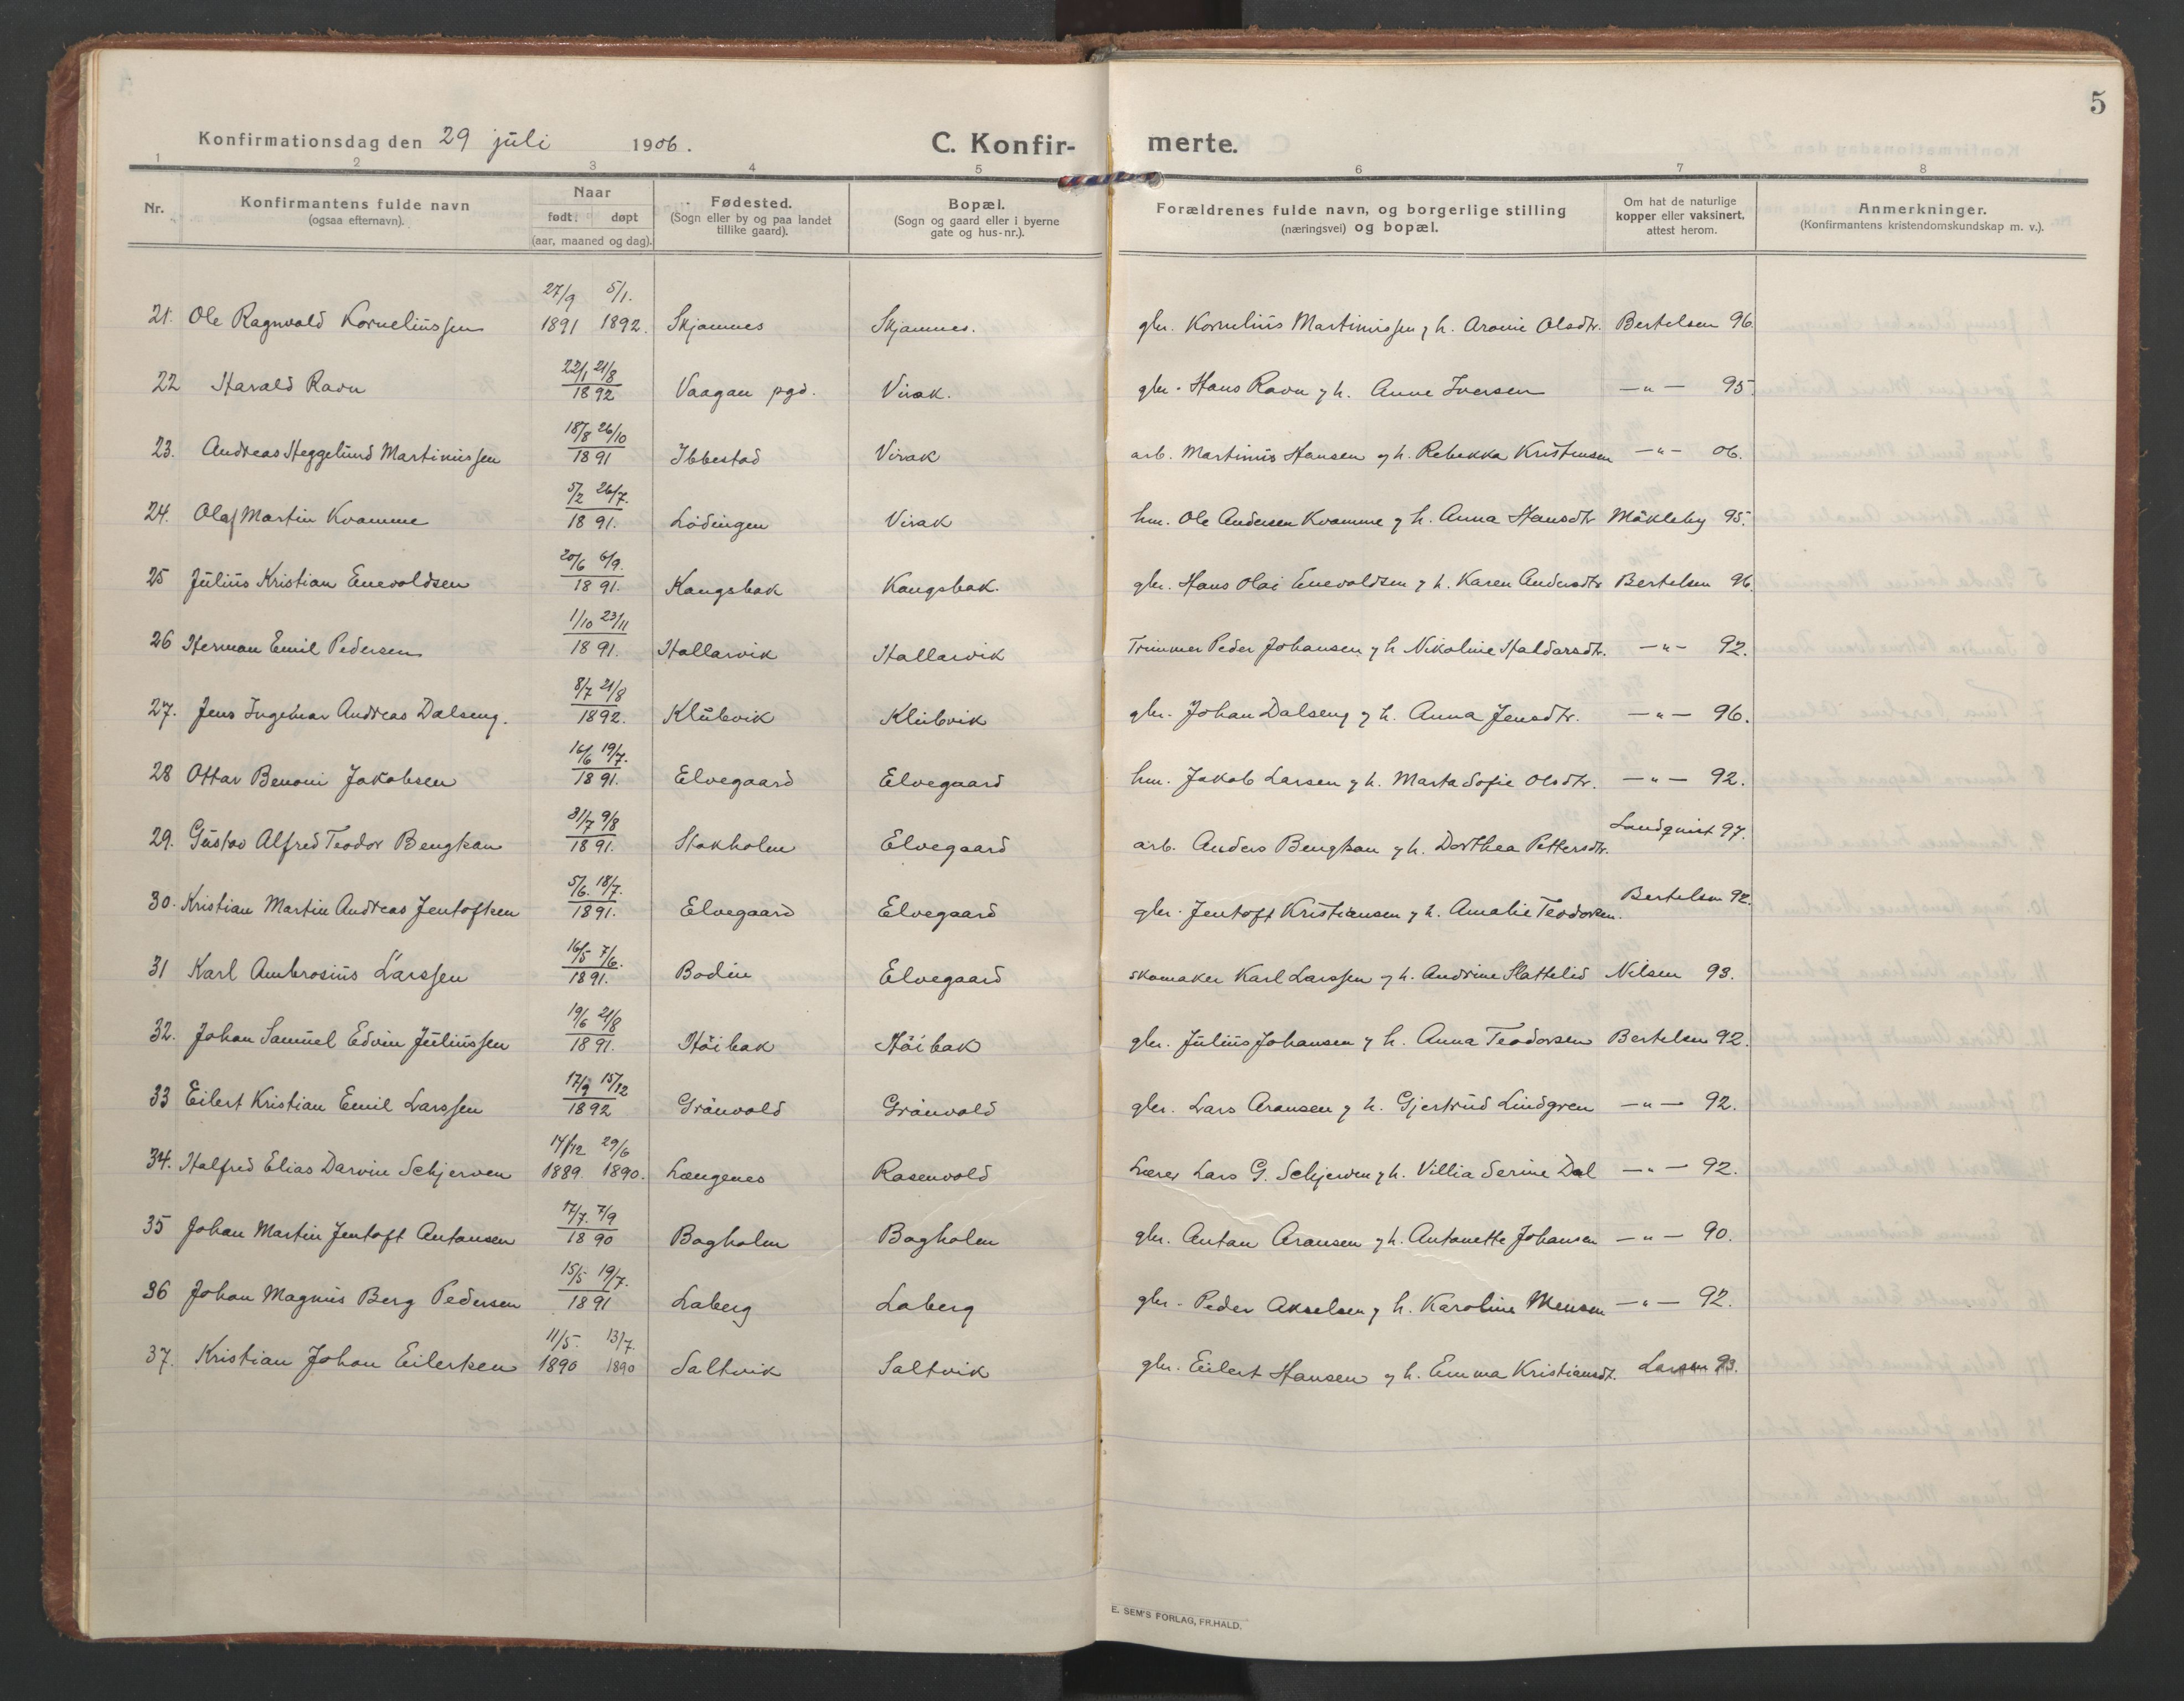 5
Konfirmationsdag den 29 juli 1906.
C. Konfir- merte.
1 2 3 4 5 6 7 8
Nr.
Konfirmantens fulde navn
(ogsaa efternavn).
Naar
født. døpt
(aar, maaned og dag).
Fødested.
(Sogn eller by og paa landet
tillike gaard).
Bopæl.
(Sogn og gaard eller i byerne
gate og hus-nr.).
Forældrenes fulde navn, og borgerlige stilling
(næringsvei) og bopæl.
Om hat de naturlige
kopper eller vaksinert,
attest herom.
Anmerkninger.
(Konfirmantens kristendomskundskap m. v.).
27/9 5/1.
21. Ole Ragnvald Korneliussen 1891 1892. Skjomnes Skjomnes. gbr. Kornelius Martinussen g h. Aronie Olsdtr. Bertelsen 96.
22/1 21/8
22 Harald Ravn 1892 Vaagan pgd. Virak. gbr. Hans Ravn g h. Anne Iversen —"— 95.
18/8 26/10
23. Andreas Heggelund Martinussen 1891 Ibbestad Virak arb. Martinus Hansen g h. Rebekka Kristensen —"— 06.
5/2 26/7.
24. Olaf Martin Kvamme 1891. Lödingen Virak hm. Ole Andersen Kvamme g h. Anna Hansdtr Mökleby 95.
20/6 6/9.
25 Julius Kristian Enevoldsen 1891. Kongsbak Kongsbak. gbr. Hans Olai Enevoldsen g h. Karen Andersdtr Bertelsen 96.
1/10 23/11
26 Herman Emil Pedersen 1891. Hallarvik Hallarvik Trimmer Peder Johansen g h Nikoline Haldorsdtr. —"— 92.
8/7 21/8
27. Jens Ingemar Andreas Dalseng. 1892. Klubvik Klubvik gbr. Johan Dalseng g h. Anna Jensdtr. —"— 96.
16/6 19/7.
28 Ottar Benoni Jakobsen 1891. Elvegaard Elvegaard hm. Jakob Larsen g h. Marta Sofie Olsdtr. —"— 92.
31/7 9/8
29. Gustav Alfred Teodor Bengtson 1891. Stokholm Elvegaard arb. Anders Bengtson g h. Dorthea Pettersdtr. Landqvist 97.
5/6. 18/7.
30. Kristian Martin Andreas Jentoftsen 1891. Elvegaard Elvegaard gbr. Jentoft Kristiansen g h. Amalie Teodorsen. Bertelsen 92.
16/5 7/6.
31 Karl Ambrosius Larssen 1891. Bodin Elvegaard skomaker Karl Larssen g h. Andrine Slattelid Nilsen 93.
19/6 21/8
32. Johan Samuel Edvin Juliussen 1891. Höibak Höibak gbr. Julius Johansen g h. Anna Teodorsen Bertelsen 92.
17/9 15/12
33 Eilert Kristian Emil Larssen 1892 Grönvold Grönvold gbr. Lars Aronsen g h. Gjertrud Lindgren —"— 92.
14/12 29/6
34. Halfred Elias Darvin Schjerven 1889. 1890. Længenes Rosenvold Lærer Lars G. Schjerven g h. Villia Serine Dal —"— 92.
17/7. 7/9
35 Johan Martin Jentoft Antonsen 1890 Bogholm Bogholm gbr. Anton Aronsen g h. Antonette Johansen —"— 90.
15/5 19/7.
36 Johan Magnus Berg Pedersen 1891 Laberg Laberg gbr. Peder Akselsen g h. Karoline Mensen —"— 92.
11/5. 13/7.
37. Kristian Johan Eilertsen 1890 1890 Saltvik Saltvik gbr. Eilert Hansen g h. Emma Kristiansdt. Larsen 93.
E. SEM'S FORLAG, FR.HALD.